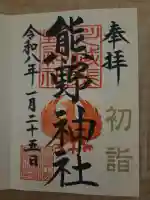 奉拝
初詣
熊野神社
令和八年一月二十五日